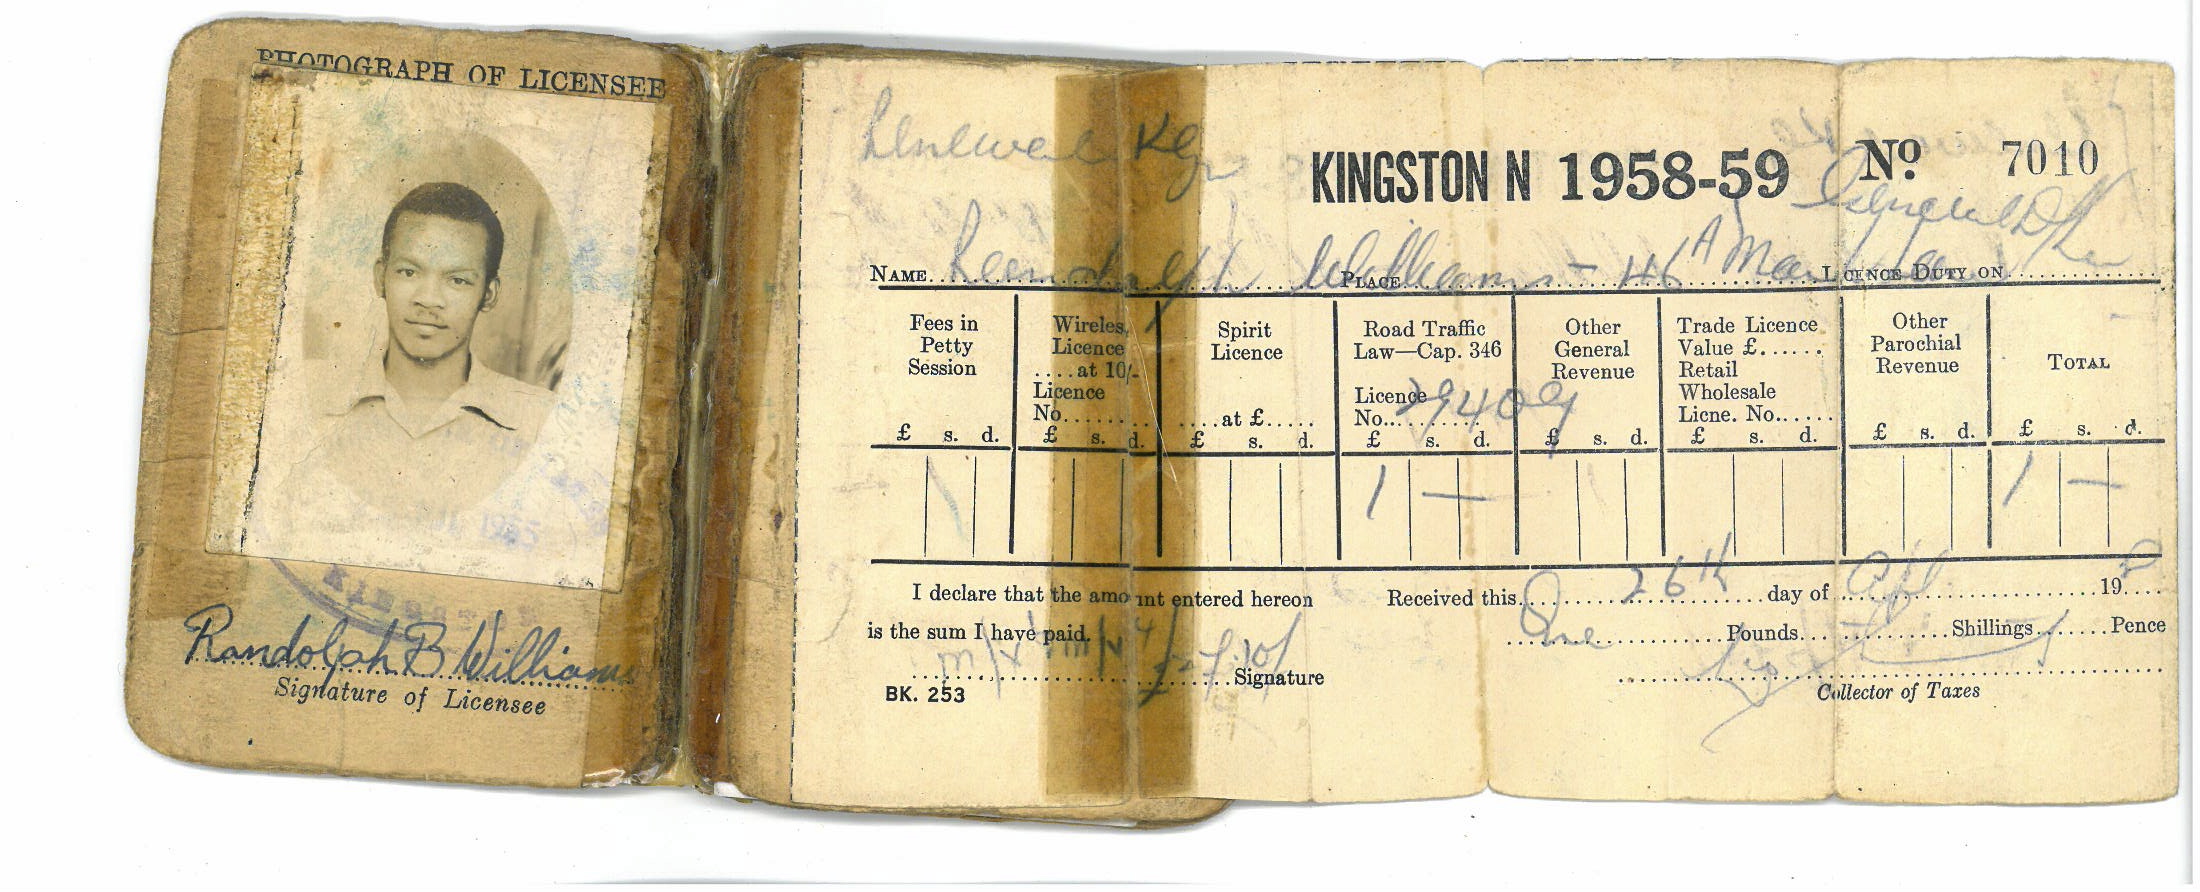 PHOTOGRAPH OF LICENSEE
1952
Randolph B Williams
Signature of Licensee
Renewal Kgn
KINGSTON N 1958-59 No. 7010
General
NAME Randolph Williams - 46A PLACE LICENCE DUTY ON
Fees in Petty Session £ s. d.
Wireless Licence ....at 10/- Licence No. £ s. d.
Spirit Licence ....at £..... £ s. d.
Road Traffic Law—Cap. 346 Licence No. 29409 £ s. d.
Other General Revenue £ s. d.
Trade Licence Value £...... Retail Wholesale Licne. No..... £ s. d.
Other Parochial Revenue £ s. d.
TOTAL £ s. d.
1 —
1 —
I declare that the amount entered hereon
is the sum I have paid.
Signature
BK. 253
Received this 26th day of 19
One Pounds Shillings Pence
Collector of Taxes